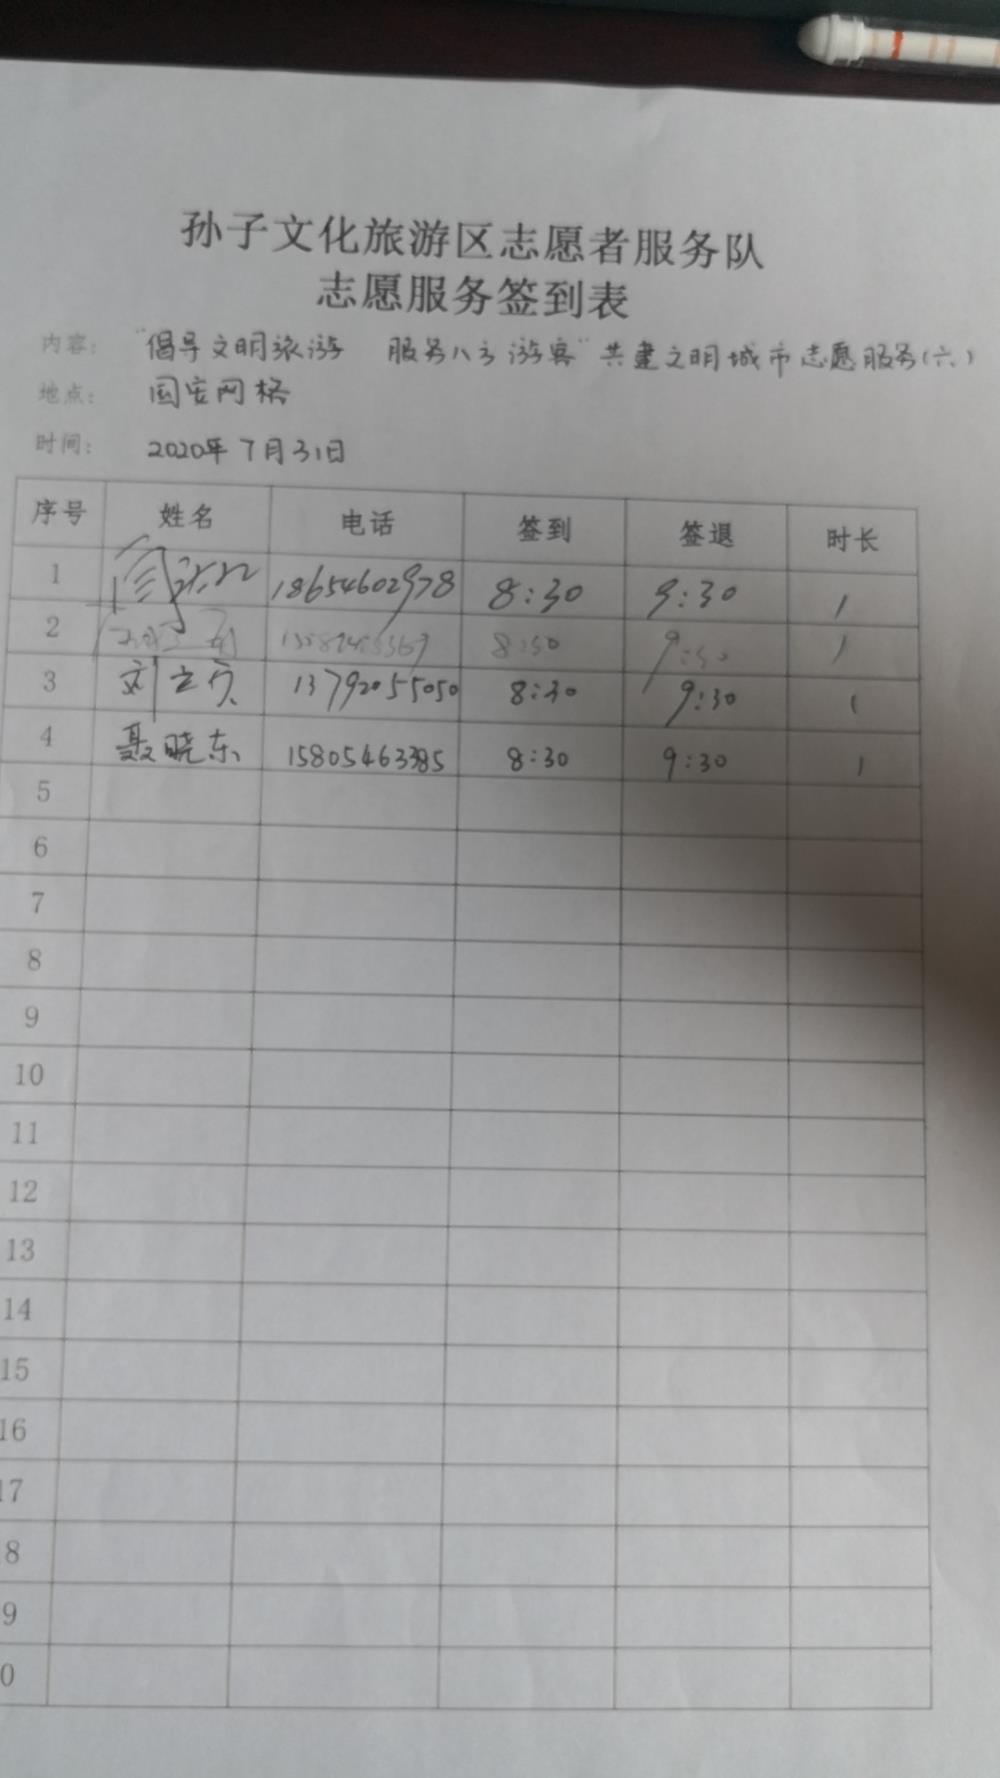 孙子文化旅游区志愿者服务队
志愿服务签到表
内容: "倡导文明旅游 服务八方游客"共建文明城市志愿服务(六)
地点: 国安网格
时间: 2020年7月31日
序号 姓名 电话 签到 签退 时长
1 18654602978 8:30 9:30 1
2 8:30 9:30 1
3 刘立贞 13792055050 8:30 9:30 1
4 聂晓东 15805463385 8:30 9:30 1
5
6
7
8
9
10
11
12
13
14
15
16
17
8
9
0